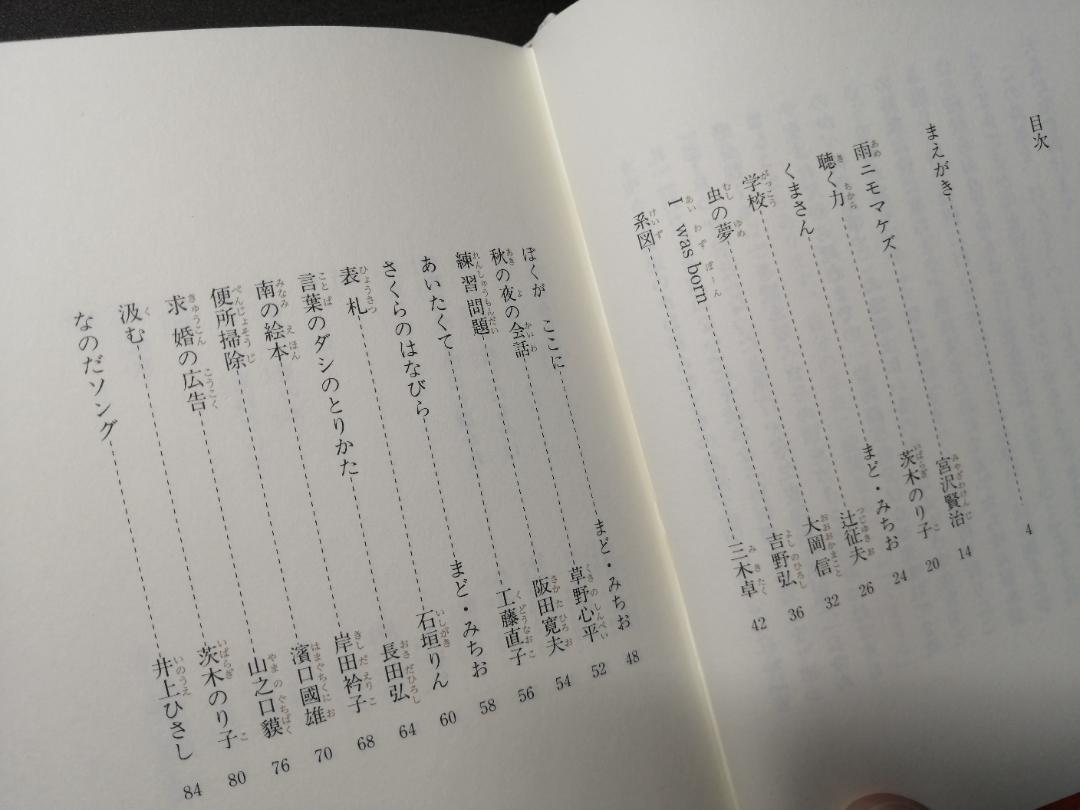 目次
まえがき 4
雨ニモマケズ 宮沢賢治 14
聴く力 茨木のり子 20
くまさん まど・みちお 24
学校 辻征夫 26
虫の夢 大岡信 32
I was born 吉野弘 36
系図 三木卓 42
ぼくが ここに まど・みちお 48
秋の夜の会話 草野心平 52
練習問題 阪田寛夫 54
あいたくて 工藤直子 56
さくらのはなびら まど・みちお 58
表札 石垣りん 60
言葉のダシのとりかた 長田弘 64
南の絵本 岸田衿子 68
便所掃除 濱口國雄 70
求婚の広告 山之口貘 76
汲む 茨木のり子 80
なのだソング 井上ひさし 84